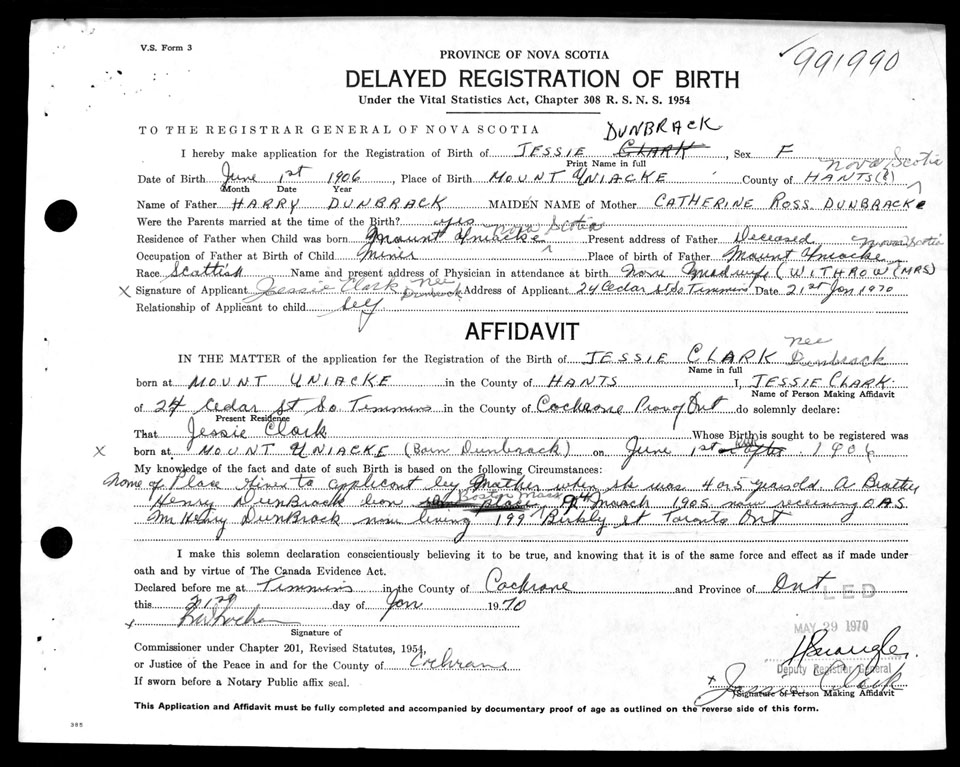 V.S. Form 3
991990
PROVINCE OF NOVA SCOTIA
DELAYED REGISTRATION OF BIRTH
Under the Vital Statistics Act, Chapter 308 R. S. N. S. 1954
TO THE REGISTRAR GENERAL OF NOVA SCOTIA DUNBRACK
I hereby make application for the Registration of Birth of JESSIE CLARK, Sex F
Print Name in full Nova Scotia
Date of Birth June 1st 1906, Place of Birth MOUNT UNIACKE County of HANTS
Month Date Year
Name of Father HARRY DUNBRACK MAIDEN NAME of Mother CATHERINE ROSS DUNBRACK
Were the Parents married at the time of the Birth? yes Nova Scotia
Residence of Father when Child was born Mount Uniacke Present address of Father Deceased Nova Scotia
Occupation of Father at Birth of Child Miner Place of birth of Father Mount Uniacke
Race Scottish Name and present address of Physician in attendance at birth None Midwife (WITHROW (MRS)
X Signature of Applicant Jessie Clark Nee Dunbrack Address of Applicant 24 Cedar St So Timmins Date 21st Jan 1970
Relationship of Applicant to child Self
AFFIDAVIT
nee
IN THE MATTER of the application for the Registration of the Birth of JESSIE CLARK Dunbrack
Name in full
born at MOUNT UNIACKE in the County of HANTS I, JESSIE CLARK
Name of Person Making Affidavit
of 24 Cedar St So Timmins in the County of Cochrane Prov of Ont do solemnly declare:
Present Residence
That Jessie Clark Whose Birth is sought to be registered was
X born at MOUNT UNIACKE (Born Dunbrack) on June 1st 1906
My knowledge of the fact and date of such Birth is based on the following Circumstances:
Name of Place given to applicant by Mother when she was 4 or 5 years old A Brother
Henry DunBrack born Boston Mass 9th March 1905 now receiving OAS
Mr Henry DunBrack now living 199 St Toronto Ont
I make this solemn declaration conscientiously believing it to be true, and knowing that it is of the same force and effect as if made under
oath and by virtue of The Canada Evidence Act.
Declared before me at Timmins in the County of Cochrane and Province of Ont
this 21st day of Jan 1970
LED
MAY 29 1970
Signature of
Commissioner under Chapter 201, Revised Statutes, 1954,
or Justice of the Peace in and for the County of Cochrane
Deputy Registrar General
X Jessie Clark
If sworn before a Notary Public affix seal.
Signature of Person Making Affidavit
This Application and Affidavit must be fully completed and accompanied by documentary proof of age as outlined on the reverse side of this form.
385